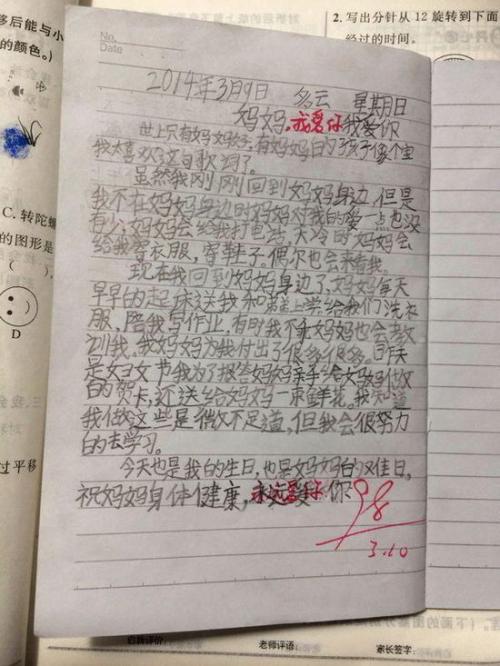 No.
Date
2014年3月9日 多云 星期日
妈妈,我爱你
世上只有妈妈好,有妈妈的孩子像个宝
我太喜欢这首歌词了。
虽然我刚刚回到妈妈身边,但是
我不在妈妈身边时妈妈对我的爱一点也没
有少,妈妈会给我打电话,天冷时妈妈会
给我寄衣服,寄鞋子,偶尔也会来看我。
现在我回到妈妈身边了,妈妈每天
早早的起床送我和弟弟上学给我们洗衣
服,陪我写作业,有时我不乖妈妈也会教
训我。我妈妈为我付出了很多很多。昨天
是妇女节我为了报答妈妈亲手给妈妈做
的贺卡,还送给妈妈一束鲜花。我知道
我做这些是微不足道,但我会很努力
的去学习。
今天也是我的生日,也是妈妈的
祝妈妈身体健康,永远爱你
98
3.10
移后能与小
的颜色。)
C. 转陀螺
的图形是
( )。
D
过平移
2. 写出分针从 12 旋转到下面
经过的时间。
自我评价:
老师评语:
家长签字: